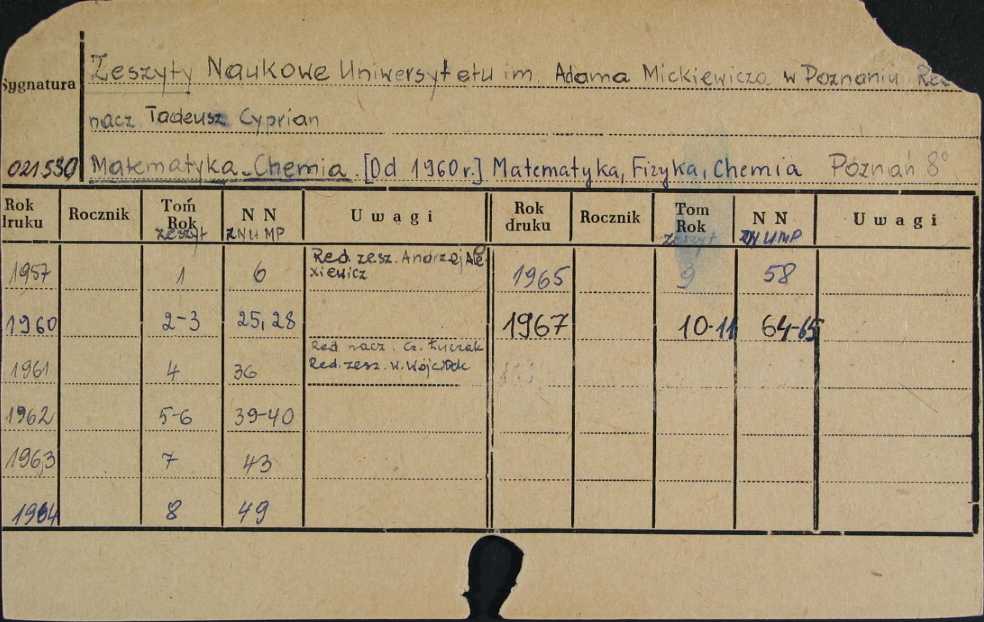 Sygnatura
Zeszyty Naukowe Uniwersytetu im. Adama Mickiewicza w Poznaniu Red
nacz Tadeusz Cyprian
021530 Matematyka-Chemia. [Od 1960 r.] Matematyka, Fizyka, Chemia Póznań 8°
Rok druku Rocznik Tom Rok zeszyt N N ZNUMP Uwagi Rok druku Rocznik Tom Rok zeszyt N N ZNUMP Uwagi
1957 1 6 Red. zesz. Andrzej Alexiewicz 1965 9 58
1960 2-3 25, 28 1967 10-11 64-65
Red. nacz. Cz. Łuczak
1961 4 36 Red. zesz. W. Wójcik
1962 5-6 39-40
1963 7 43
1964 8 49